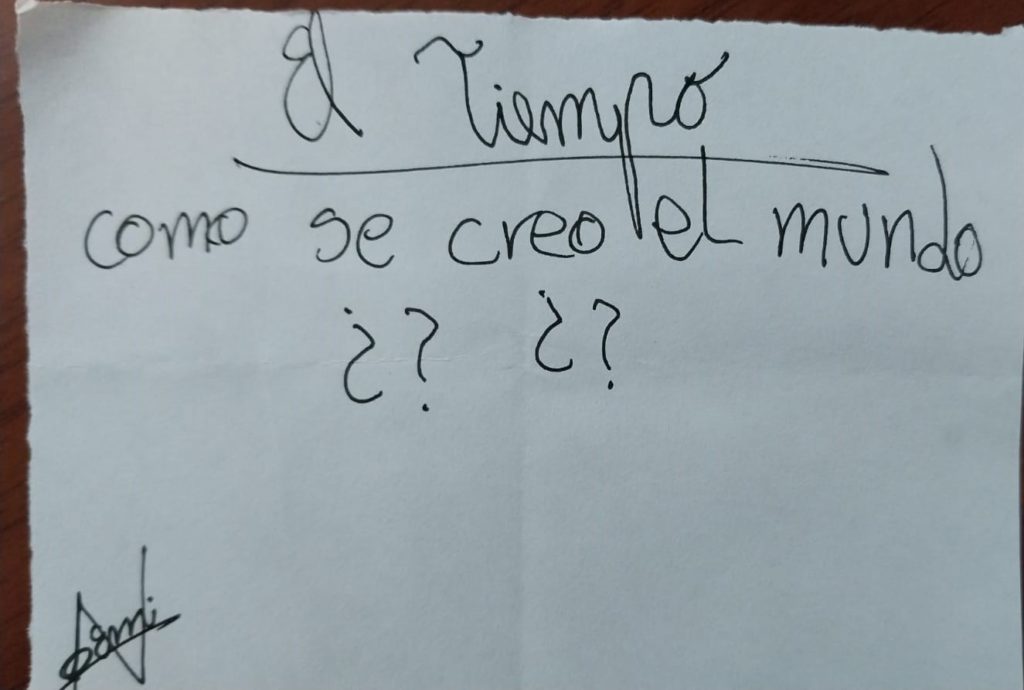 El Tiempo
como se creo el mundo
¿? ¿?